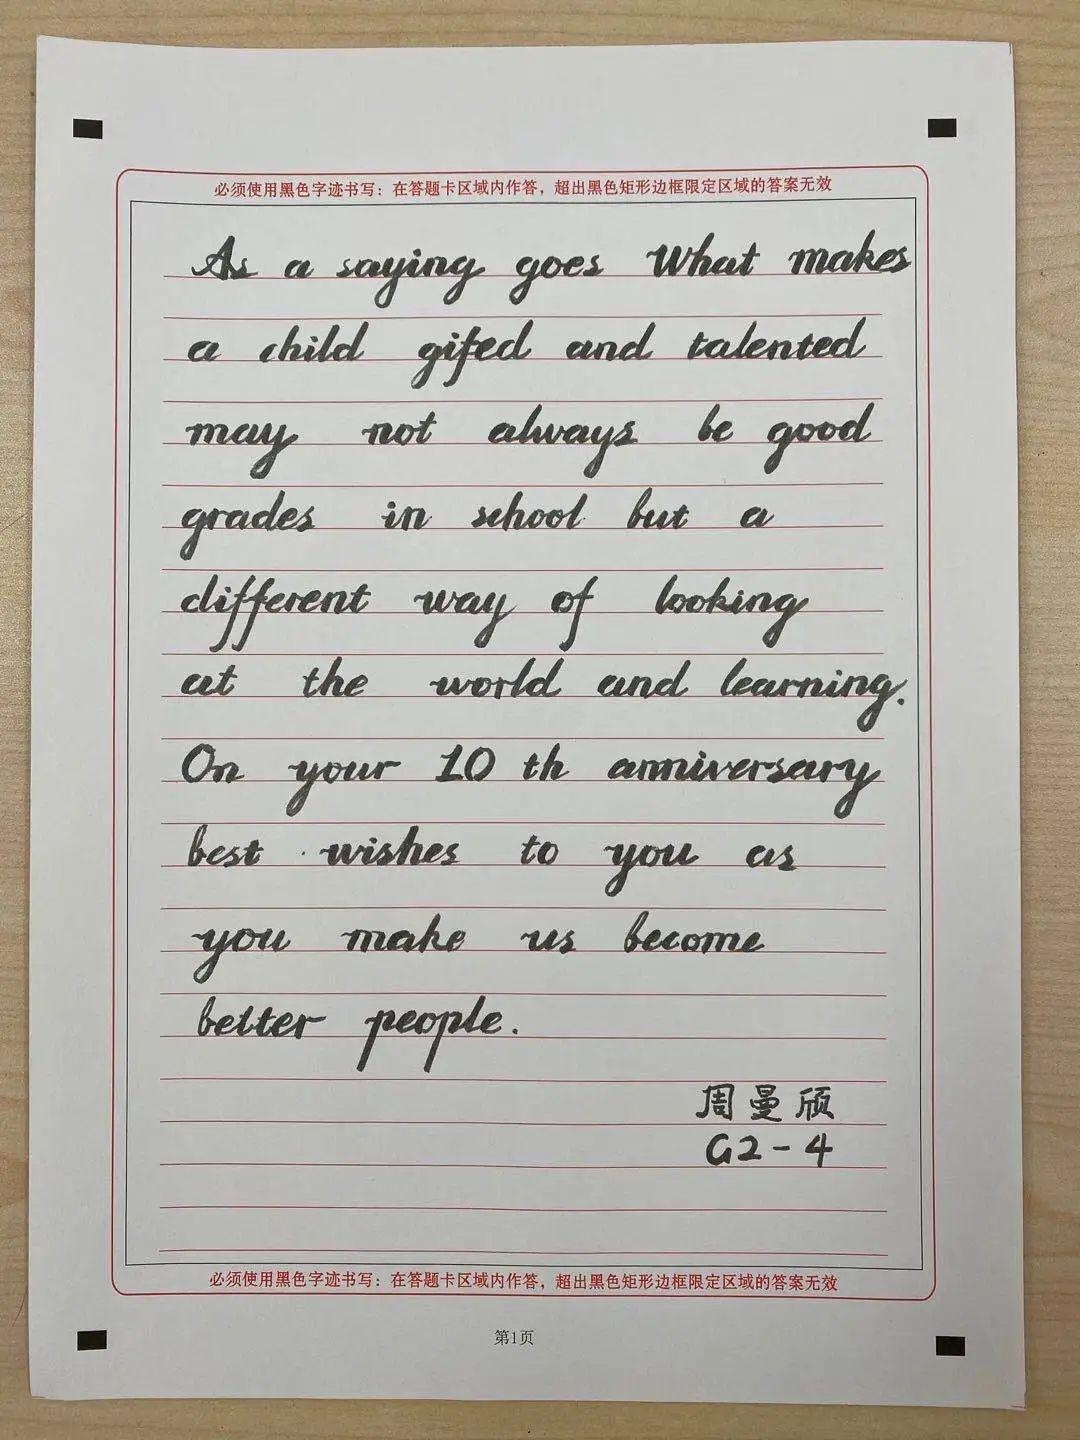 必须使用黑色字迹书写：在答题卡区域内作答，超出黑色矩形边框限定区域的答案无效
As a saying goes What makes
a child gifed and talented
may not always be good
grades in school but a
different way of looking
at the world and learning.
On your 10 th anniversary
best wishes to you as
you make us become
better people.
周曼颀
G2-4
必须使用黑色字迹书写：在答题卡区域内作答，超出黑色矩形边框限定区域的答案无效
第1页